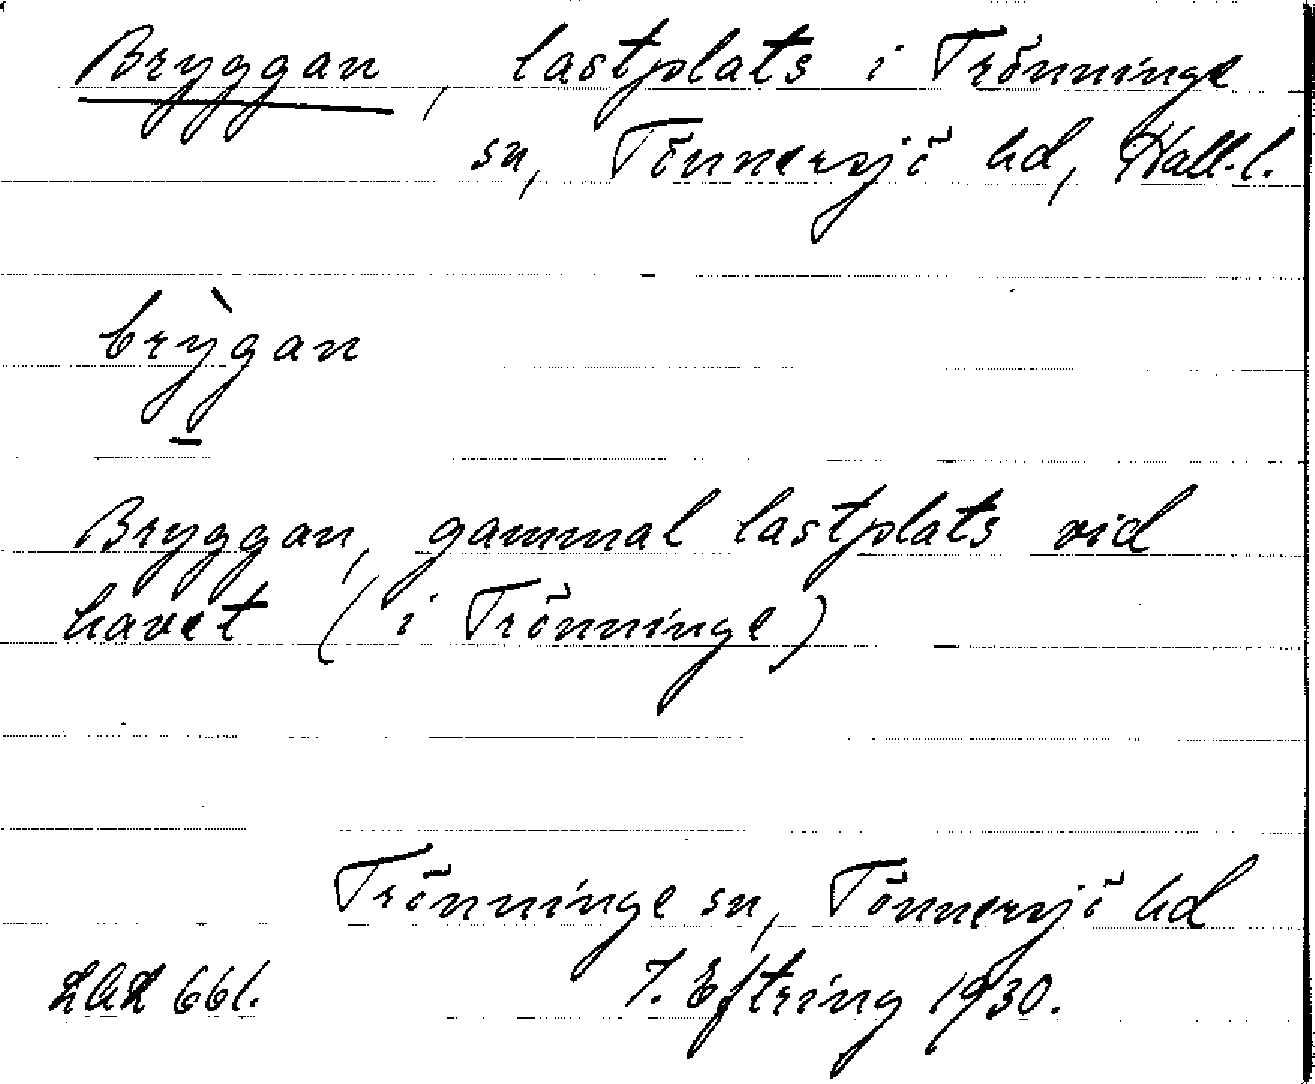 Bryggan, lastplats i Trönninge
sn, Tönnersjö hd, Hall.l.
brỳgan
Bryggan, gammal lastplats vid
havet (i Trönninge)
Trönninge sn, Tönnersjö hd
LAL 661. J. Eftring 1930.